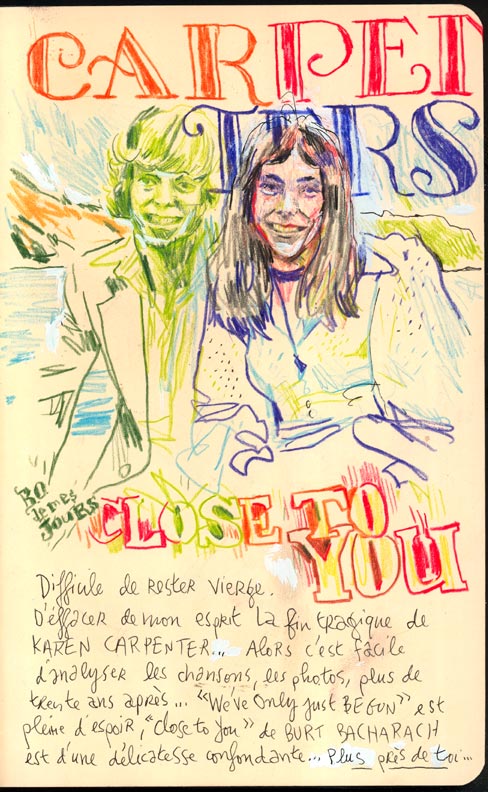 CARPEN
TERS
BO
de mes
JOURS
CLOSE TO
YOU
Difficile de rester vierge.
D'effacer de mon esprit la fin tragique de
KAREN CARPENTER... Alors c'est facile
d'analyser les chansons, les photos, plus de
trente ans après... "We've Only Just BEGUN" est
pleine d'espoir, "Close to You" de BURT BACHARACH
est d'une délicatesse confondante... Plus près de toi...